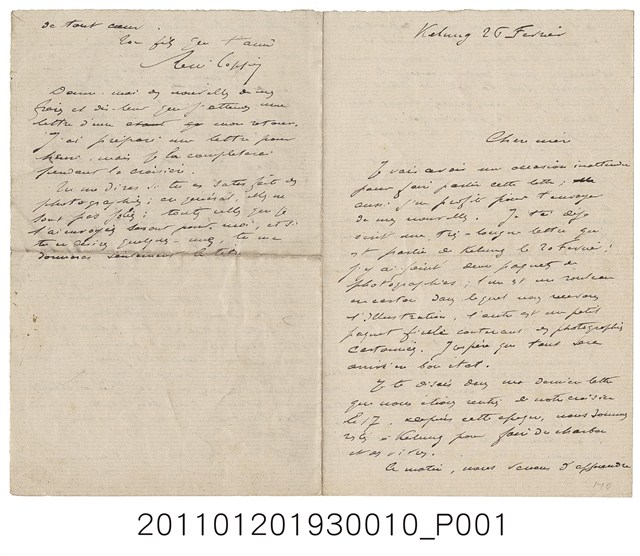 Kelung 26 Fevrier
Cher mère
Je vais avoir une occasion inattendue
pour faire partir cette lettre;
aussi j'en profite pour t'envoyer
de mes nouvelles. Je t'ai déjà
écrit une très-longue lettre qui
est partie de Kelung le 20 Fevrier;
j'y ai joint deux paquets de
photographies; l'un est un rouleau
en carton dans lequel nous recevons
l'Illustration, l'autre est un petit
paquet ficelé contenant des photographies
cartonnées. J'espère que tout sera
arrivé en bon état.
Je te disais dans ma dernière lettre
que nous étions rentrés de notre croisière
le 17, depuis cette époque, nous sommes
restés à Kelung pour faire du charbon
et des vivres.
Ce matin, nous venons d'apprendre
de tout cœur.
Ton fils qui t'aime
René Coppin
Donne-moi des nouvelles de mes
frères et dis-leur que j'attends une
lettre d'eux à mon retour.
J'ai préparé une lettre pour
Henri, mais je la compléterai
pendant la croisière.
Tu me diras si tu es satisfaite des
photographies; en général, elles ne
sont pas jolies; toutes celles que je
t'ai envoyées sont pour moi, et si
tu en désires quelques-unes, tu me
donneras seulement le titre.
201101201930010_P001